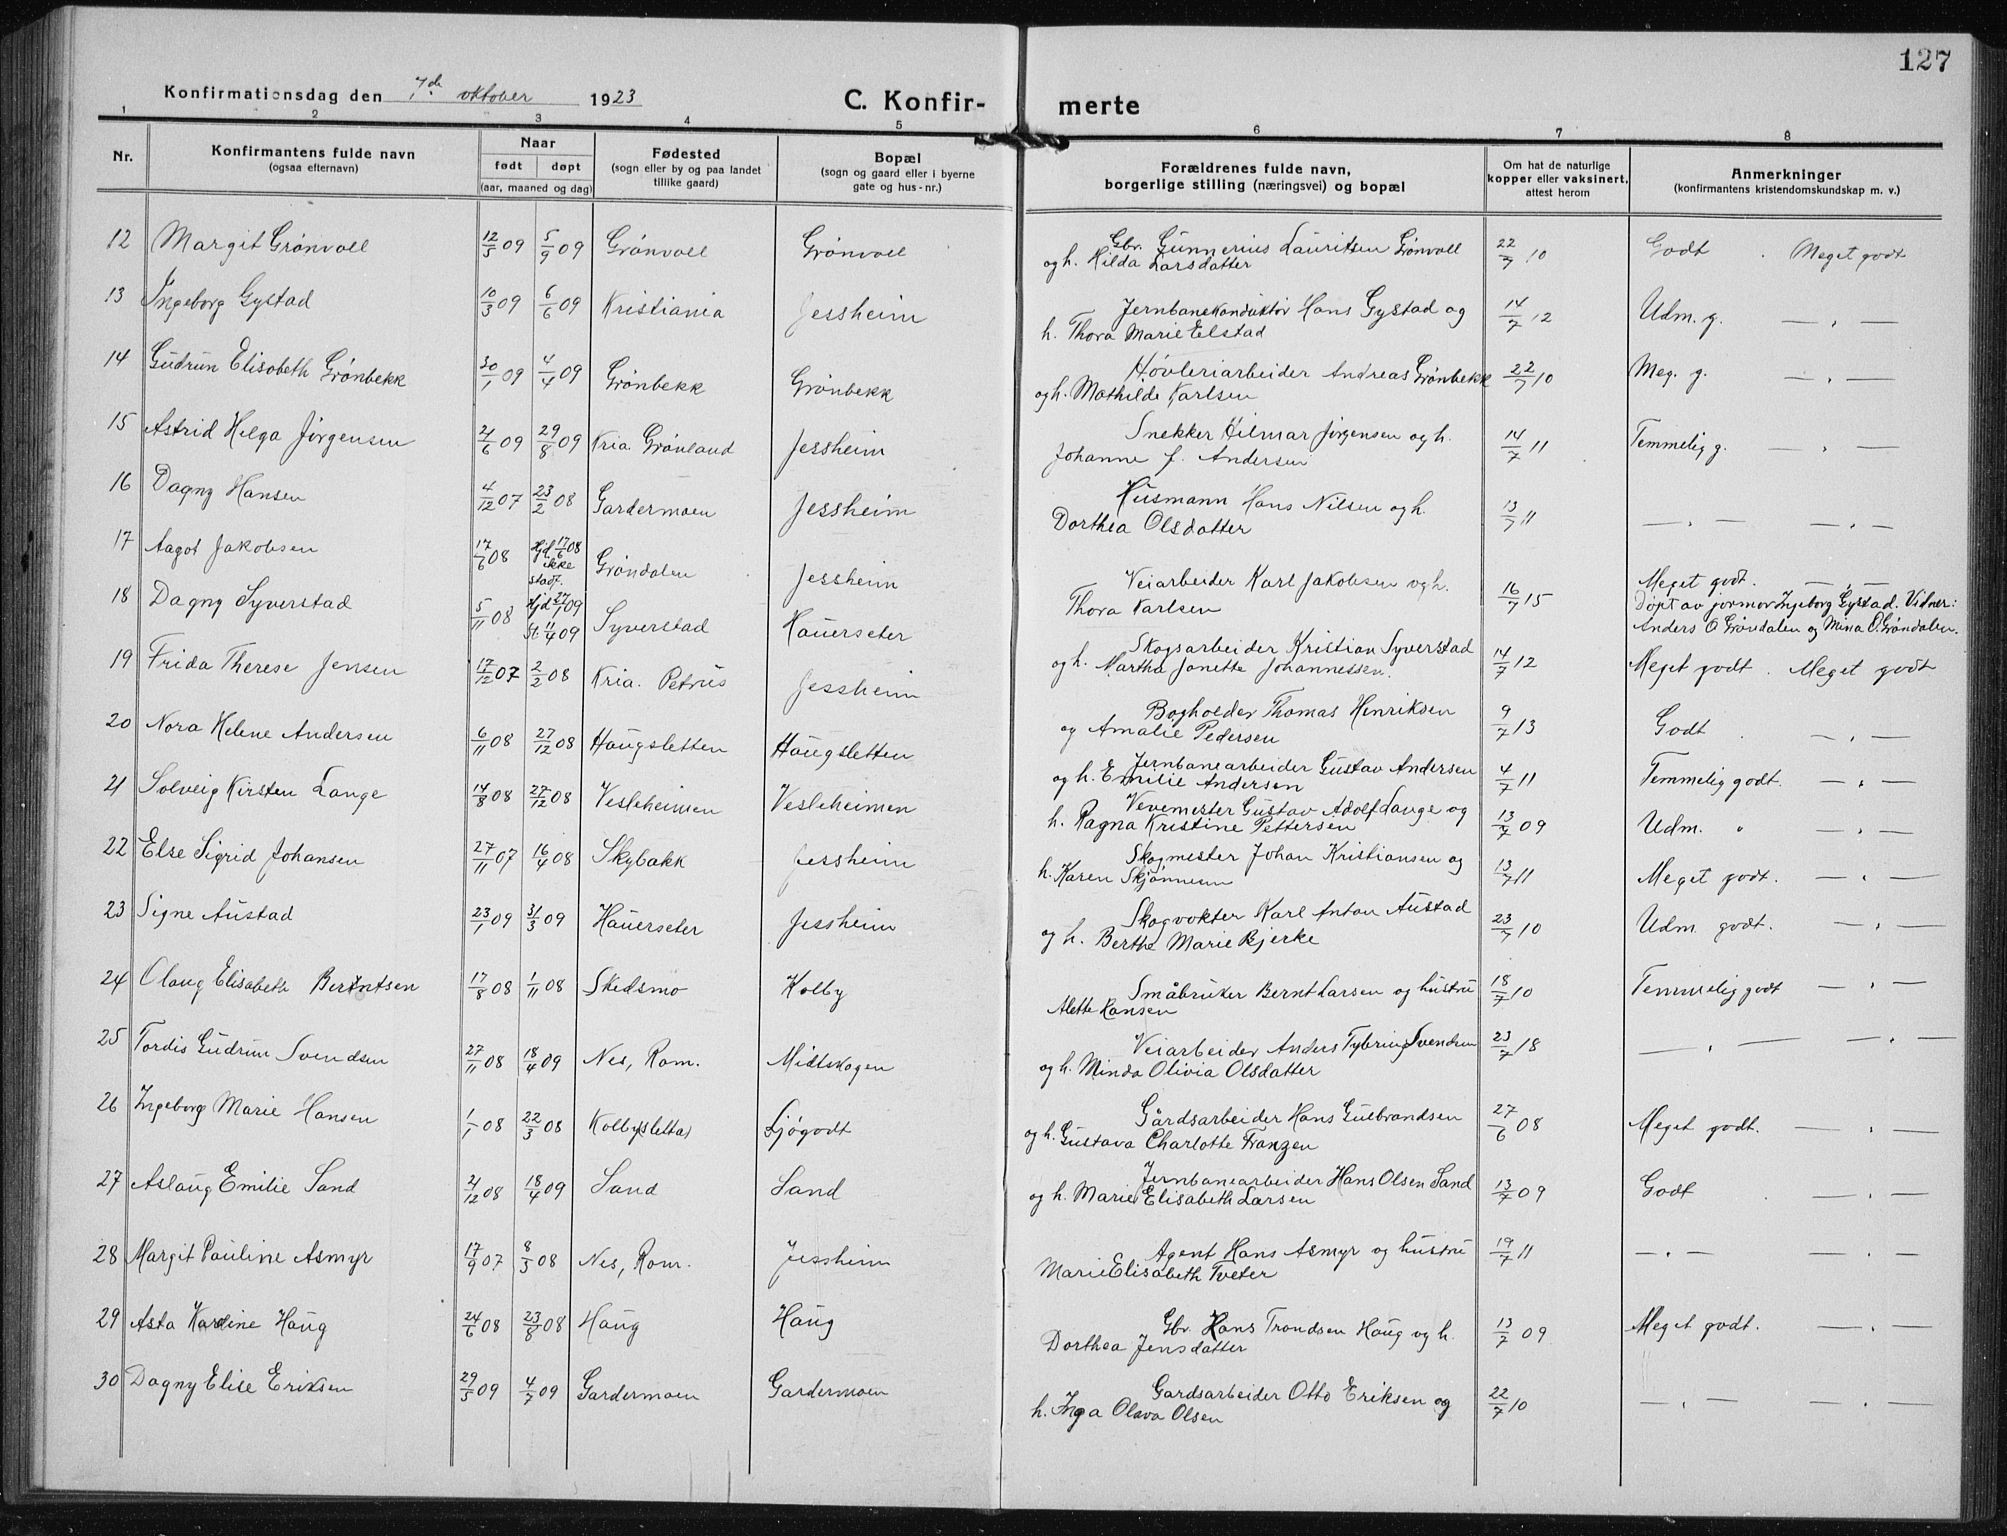 127
Konfirmationsdag den 7de oktober 1923 C. Konfir- merte
1 2 3 4 5 6 7 8
Nr. Konfirmantens fulde navn (ogsaa efternavn) Naar født døpt (aar, maaned og dag) Fødested (sogn eller by og paa landet tillike gaard) Bopæl (sogn og gaard eller i byerne gate og hus-nr.) Forældrenes fulde navn, borgerlige stilling (næringsvei) og bopæl Om hat de naturlige kopper eller vaksinert, attest herom Anmerkninger (konfirmantens kristendomskundskap m. v.)
12 Margit Grönvoll 12/5 09 5/9 09 Grönvoll Grönvoll Gbr. Gunnerius Lauritsen Grönvoll
og h. Hilda Larsdatter 22/7 10 Godt . Meget godt
13 Ingeborg Gystad 10/3 09 6/6 09 Kristiania Jessheim Jernbanekonduktör Hans Gystad og
h. Thora Marie Elstad 14/7 12 Udm. g. — " —
14 Gudrun Elisabeth Grönbekk 30/1 09 4/4 09 Grönbekk Grönbekk Høvleriarbeider Andreas Grönbekk
og h. Mathilde Karlsen 22/7 10 Meg. g. — " —
15 Astrid Helga Jörgensen 21/6 09 29/8 09 Kria. Grönland Jessheim Snekker Hilmar Jörgensen og h.
Johanne J. Andersen 14/7 11 Temmelig g. — " —
16 Dagny Hansen 4/12 07 23/2 08 Gardermoen Jessheim Husmann Hans Nilsen og h.
Dorthea Olsdatter 13/7 11 — " — — " —
17 Aagot Jakobsen 17/6 08 Hjd. 17/6 08 ikke stadf. Gröndalen Jessheim Veiarbeider Karl Jakobsen og h.
Thora Karlsen 16/7 15 Meget godt. — " —
Döpt av jormor Ingeborg Gystad. Vidner:
Anders O Gröndalen og Mina O. Gröndalen.
18 Dagny Syverstad 5/11 08 Hjd 27/1 09 St. 11/4 09 Syverstad Hauerseter Skogsarbeider Kristian Syverstad
og h. Martha Janette Johannessen. 14/7 12 Meget godt . Meget godt
19 Frida Therese Jensen 17/12 07 2/2 08 Kria. Petrus Jessheim Bogholder Thomas Henriksen
og Amalie Pedersen 9/7 13 Godt . — " —
20 Nora Helene Andersen 6/11 08 27/12 08 Haugsletten Haugsletten Jernbanearbeider Gustav Andersen
og h. Emilie Andersen 4/7 11 Temmelig godt. — " —
21 Solveig Kirsten Lange 14/8 08 27/12 08 Vesleheimen Vesleheimen Vevemester Gustav Adolf Lange og
h. Ragna Kristine Pettersen 13/7 09 Udm. " — " —
22 Else Sigrid Johansen 27/11 07 16/4 08 Skybakk Jessheim Skogmester Johan Kristiansen og
h. Karen Skjönneen 13/7 11 Meget godt. — " —
23 Signe Austad 23/1 09 31/3 09 Hauerseter Jessheim Skogvokter Karl Anton Austad
og h. Berthe Marie Bjerke 23/7 10 Udm. godt. — " —
24 Olaug Elisabeth Berntsen 17/8 08 1/11 08 Skedsmo Kolby Småbruker Bernt Larsen og hustru
Alette Hansen 18/7 10 Temmelig godt — " —
25 Tordis Gudrun Svendsen 27/11 08 18/4 09 Nes, Rom. Midtskogen Veiarbeider Anders Tybring Svendsen
og h. Minda Olivia Olsdatter 23/7 18 — " — — " —
26 Ingeborg Marie Hansen 1/1 08 22/3 08 Kolby(sletta) Ljögodt Gårdsarbeider Hans Gulbrandsen
og h. Gustava Charlotte Franzen 27/6 08 Meget godt. — " —
27 Aslaug Emilie Sand 21/12 08 18/4 09 Sand Sand Jernbanearbeider Hans Olsen Sand
og h. Marie Elisabeth Larsen 13/7 09 Godt . — " —
28 Margit Pauline Asmyr 17/9 07 8/3 08 Nes, Rom. Jessheim Agent Hans Asmyr og hustru
Marie Elisabeth Tveter 19/7 11 — " — — " —
29 Asta Karoline Haug 24/6 08 23/8 08 Haug Haug Gbr. Hans Trondsen Haug og h.
Dorthea Jensdatter 13/7 09 Meget godt. — " —
30 Dagny Elise Eriksen 29/5 09 4/7 09 Gardermoen Gardermoen Gardsarbeider Otto Eriksen og
h. Inga Olava Olsen 22/7 10 — " — — " —